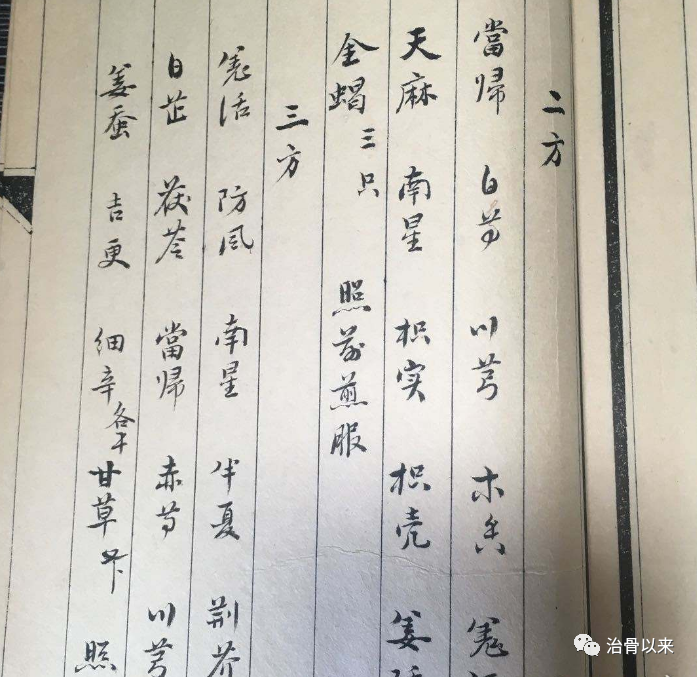 二方
當帰 白芍 川芎 木香 羗
天麻 南星 枳实 枳壳 姜
全蝎 三只 照前煎服
三方
羗活 防风 南星 半夏 荆芥
白芷 茯苓 當帰 赤芍 川芎
姜蚕 吉更 细辛 各 甘草 照
治骨以来